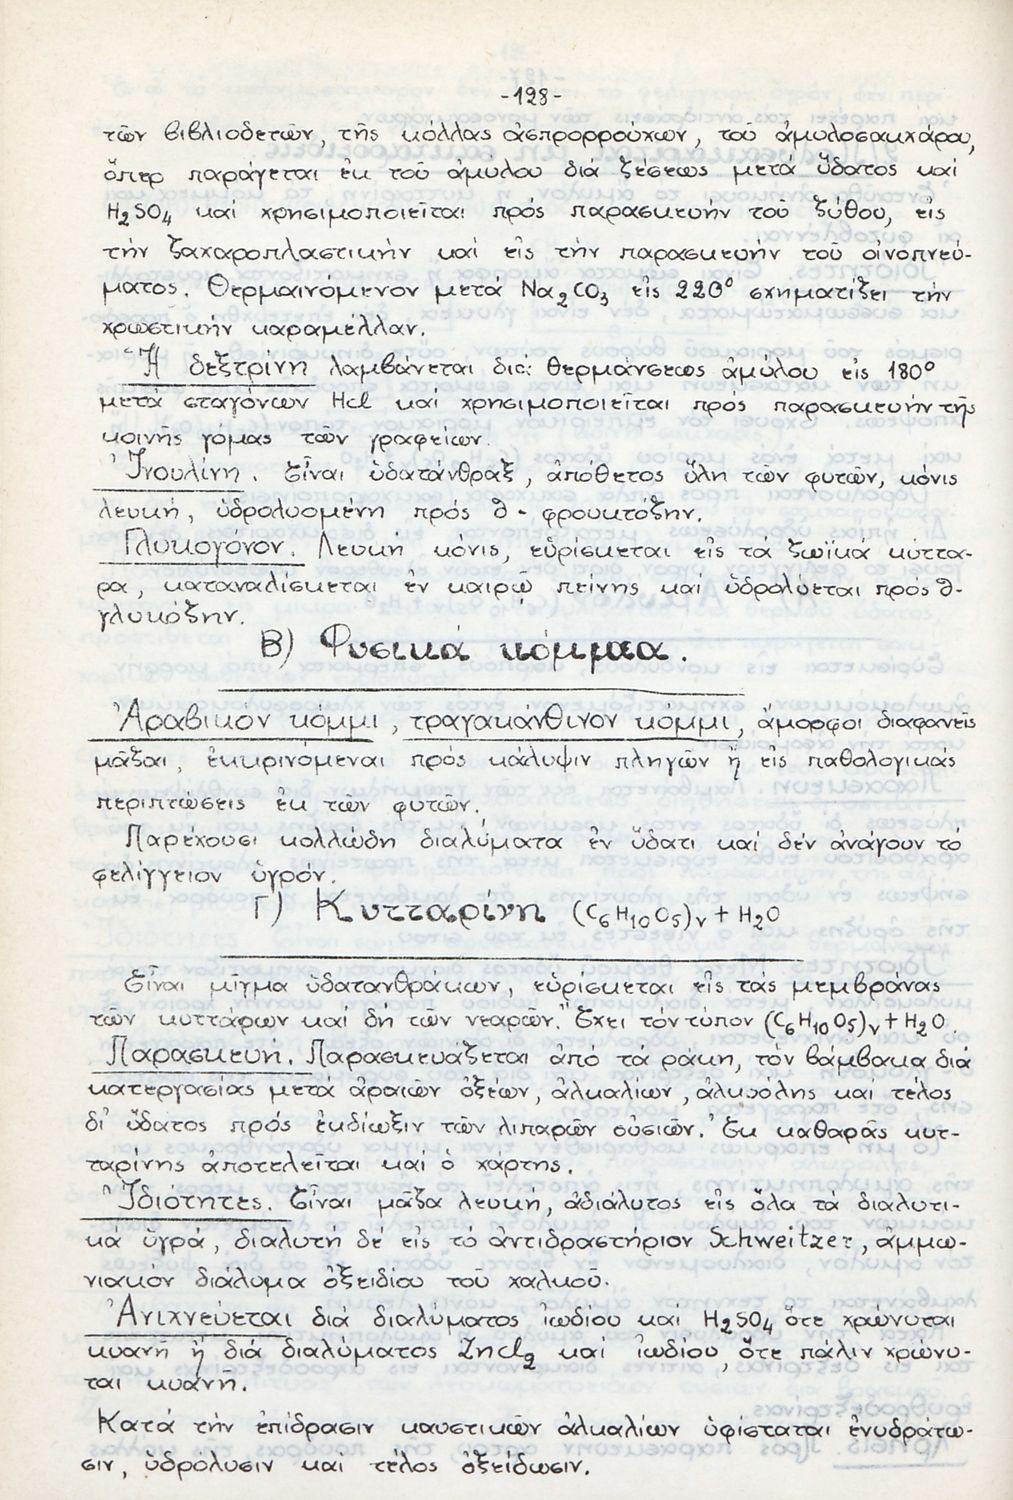 -128-
τῶν βιβλιοδετῶν, τῆς κόλλας ἀσπρορρούχων, τοῦ ἀμυλοσακχάρου,
ὅπερ παράγεται ἐκ τοῦ ἀμύλου διά ζέσεως μετά ὕδατος καί
H2SO4 καί χρησιμοποιεῖται πρός παρασκευήν τοῦ ζύθου, εἰς
τήν ζαχαροπλαστικήν καί εἰς τήν παρασκευήν τοῦ οἰνοπνεύ-
ματος. Θερμαινόμενον μετά Na2CO3 εἰς 220° σχηματίζει τήν
χρωστικήν καραμέλλαν.
Ἡ δεξτρίνη λαμβάνεται διά θερμάνσεως ἀμύλου εἰς 180°
μετά σταγόνων Hcl καί χρησιμοποιεῖται πρός παρασκευήν τῆς
κοινῆς γόμας τῶν γραφείων.
Ἰνουλίνη. Εἶναι ὑδατάνθραξ, ἀπόθετος ὕλη τῶν φυτῶν, κόνις
λευκή, ὑδρολυομένη πρός δ-φρουκτόζην.
Γλυκογόνον. Λευκή κόνις, εὑρίσκεται εἰς τά ζωϊκά κύττα-
ρα, καταναλίσκεται ἐν καιρῷ πείνης καί ὑδρολύεται πρός δ-
γλυκόζην.
Β) Φυσικά κόμμια.
Ἀραβικόν κόμμι, τραγακάνθινον κόμμι, ἄμορφοι διαφανεῖς
μᾶζαι, ἐκκρινόμεναι πρός κάλυψιν πληγῶν ἤ εἰς παθολογικάς
περιπτώσεις ἐκ τῶν φυτῶν.
Παρέχουσι κολλώδη διαλύματα ἐν ὕδατι καί δέν ἀνάγουν τό
φελίγγειον ὑγρόν.
Γ) Κυτταρίνη (C6H10O5)ν + H2O
Εἶναι μῖγμα ὑδατανθράκων, εὑρίσκεται εἰς τάς μεμβράνας
τῶν κυττάρων καί δή τῶν νεαρῶν. Ἔχει τόν τύπον (C6H10O5)ν + H2O.
Παρασκευή. Παρασκευάζεται ἀπό τά ράκη, τόν βάμβακα διά
κατεργασίας μετά ἀραιῶν ὀξέων, ἀλκαλίων, ἀλκοόλης καί τέλος
δι' ὕδατος πρός ἐκδίωξιν τῶν λιπαρῶν οὐσιῶν. Ἐκ καθαρᾶς κυτ-
ταρίνης ἀποτελεῖται καί ὁ χάρτης.
Ἰδιότητες. Εἶναι μᾶζα λευκή, ἀδιάλυτος εἰς ὅλα τά διαλυτι-
κά ὑγρά, διαλυτή δέ εἰς τό ἀντιδραστήριον Schweitzer, ἀμμω-
νιακόν διάλυμα ὀξειδίου τοῦ χαλκοῦ.
Ἀνιχνεύεται διά διαλύματος ἰωδίου καί H2SO4 ὅτε χρώνυται
κυανῆ ἤ διά διαλύματος Zncl2 καί ἰωδίου, ὅτε πάλιν χρώνυ-
ται κυανῆ.
Κατά τήν ἐπίδρασιν καυστικῶν ἀλκαλίων ὑφίσταται ἐνυδράτω-
σιν, ὑδρόλυσιν καί τέλος ὀξείδωσιν.